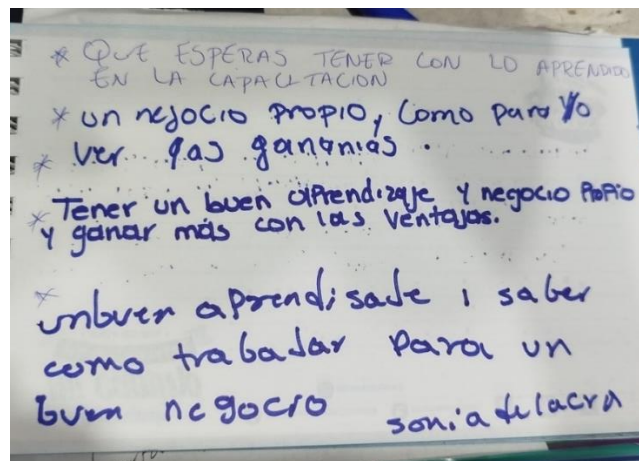 * QUE ESPERAS TENER CON LO APRENDIDO
EN LA CAPACITACION
* un nejocio propio, como para yo
* ver las gananias.
* Tener un buen aprendizaje y negocio propio
y ganar más con las ventajas.
* unbuen aprendisade i saber
como trabadar para un
buen negocio
sonia delacra